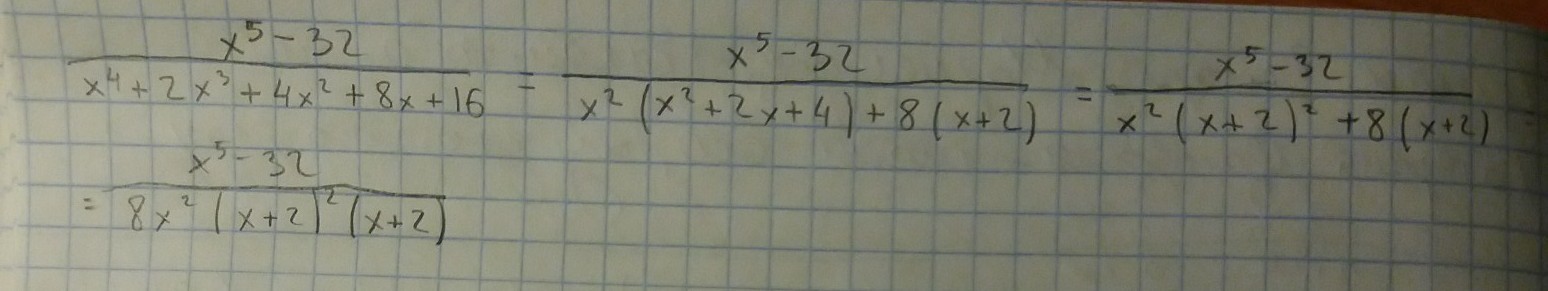 (x^5 - 32)/(x^4 + 2x^3 + 4x^2 + 8x + 16) = (x^5 - 32)/(x^2(x^2 + 2x + 4) + 8(x + 2)) = (x^5 - 32)/(x^2(x + 2)^2 + 8(x + 2)) =
= (x^5 - 32)/(8x^2(x + 2)^2(x + 2))